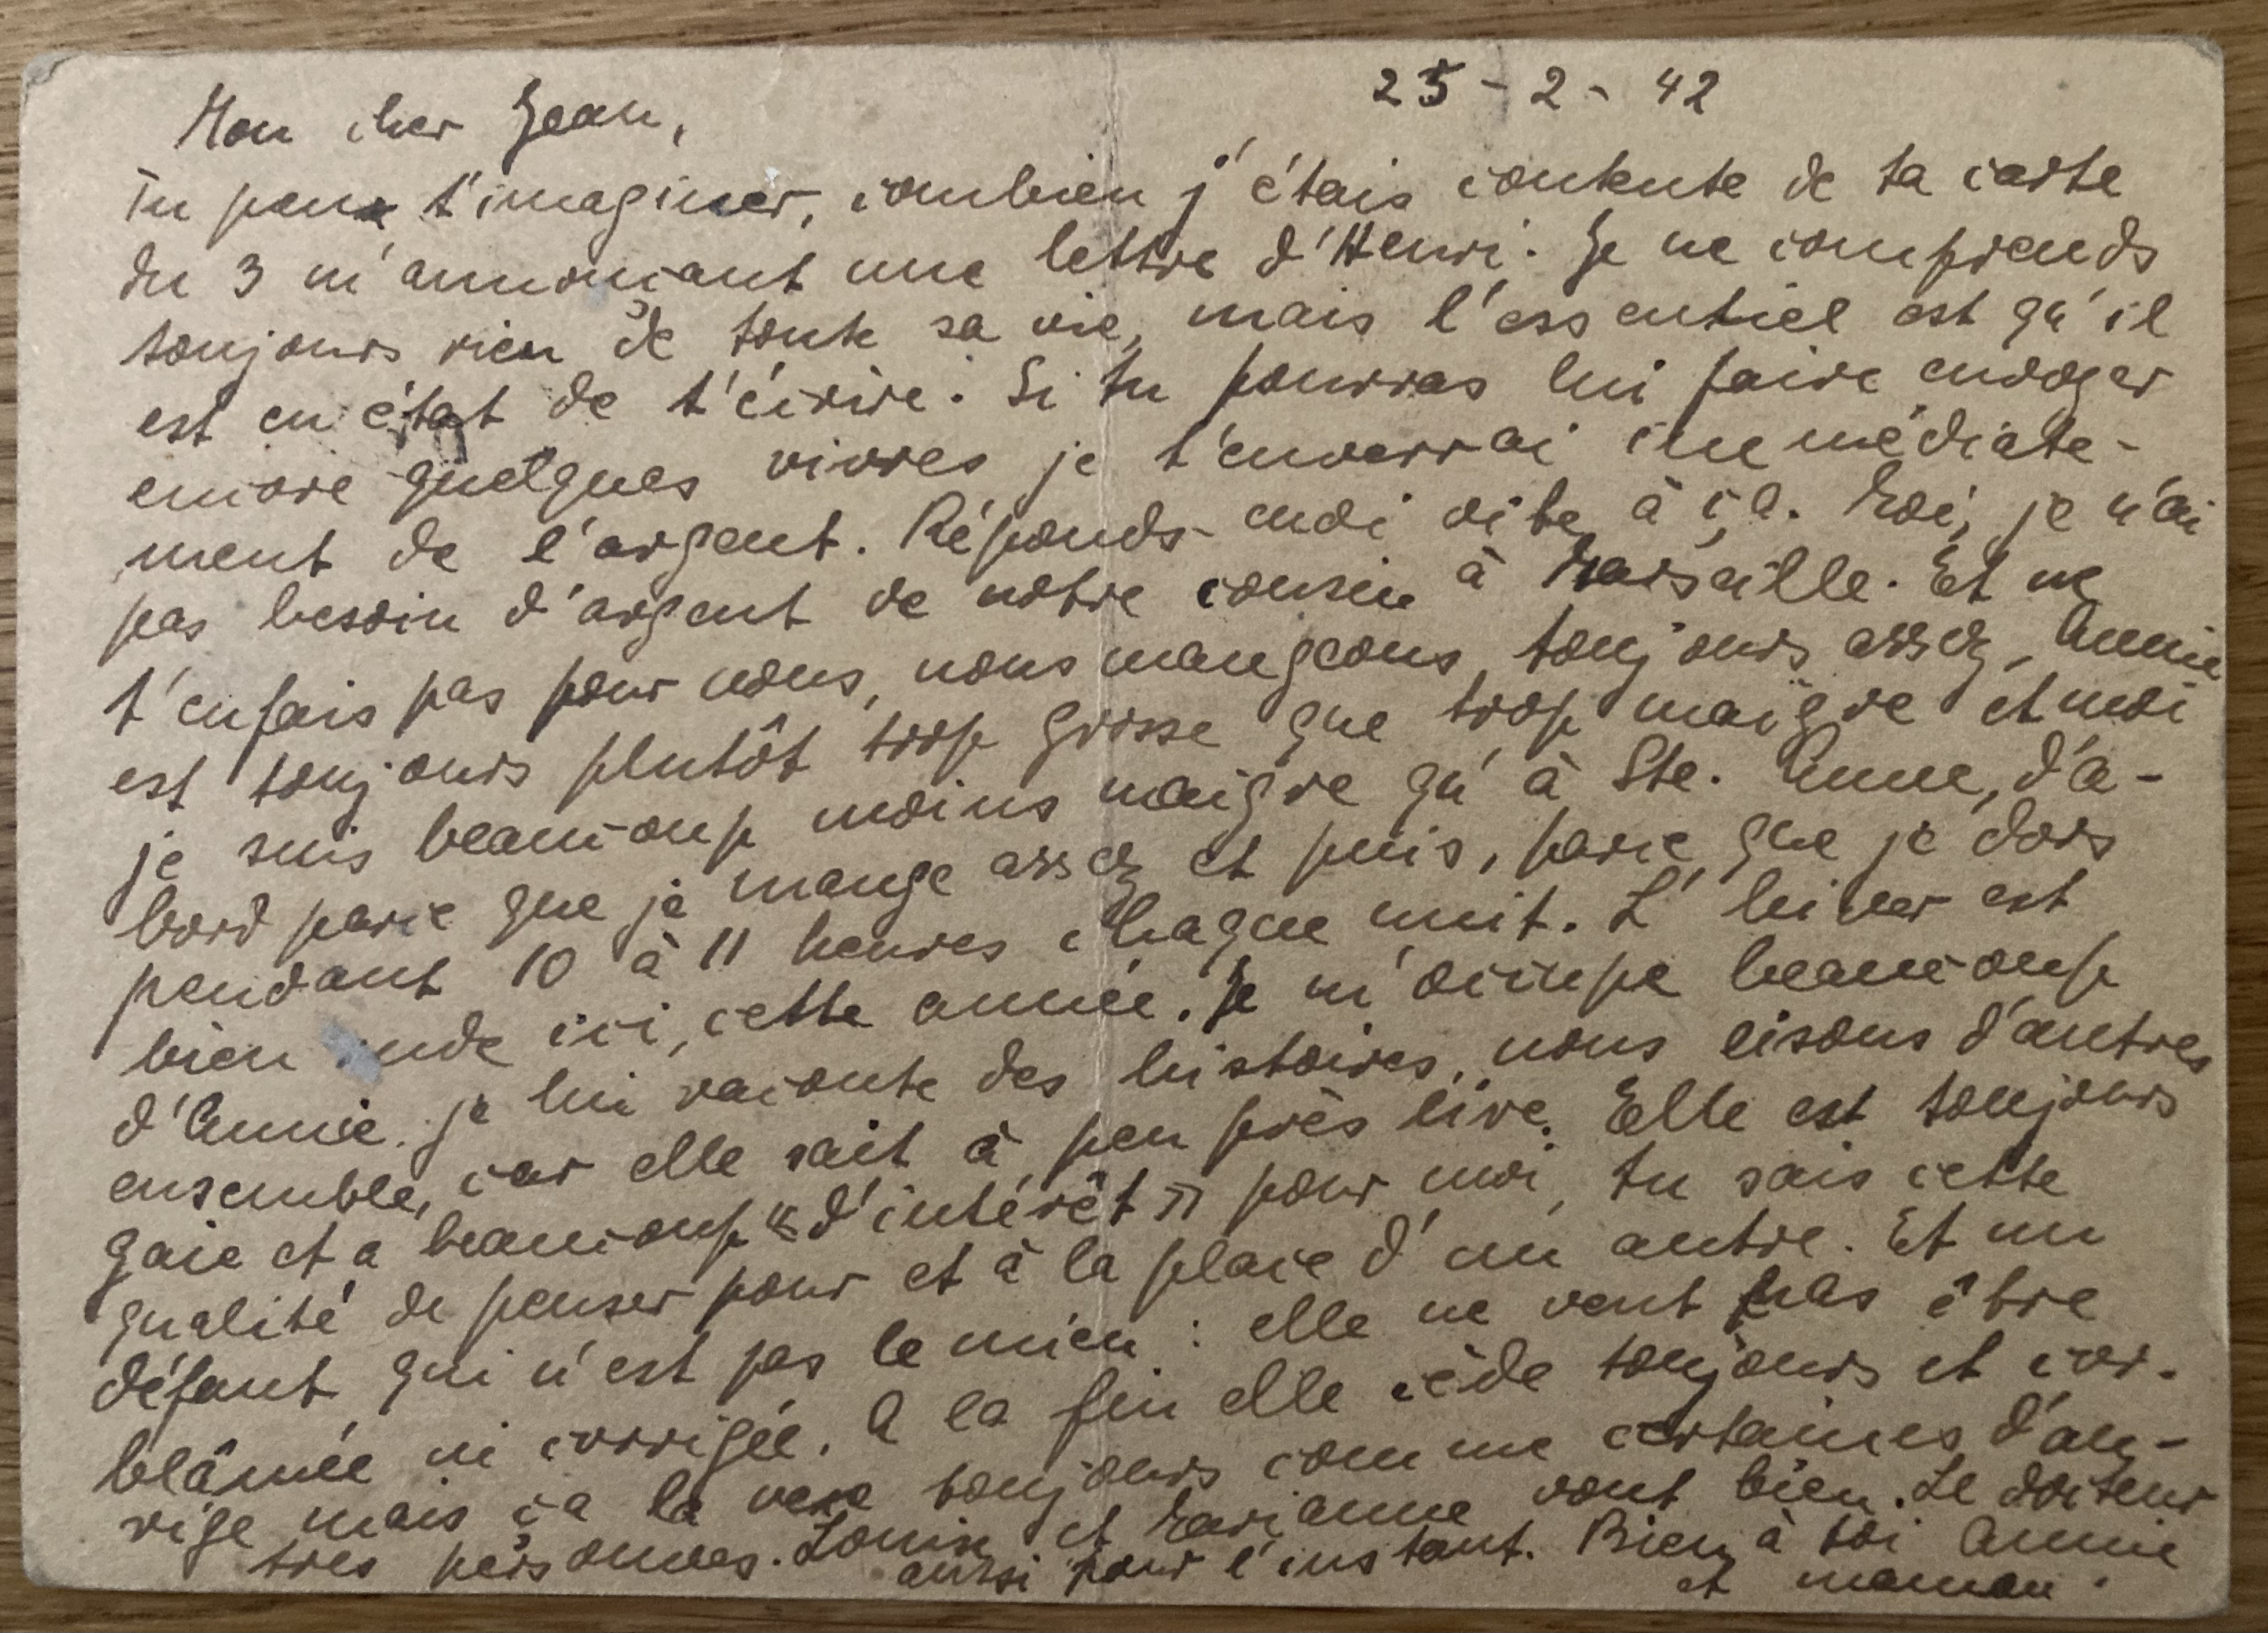 25-2-42
Mon cher Jean,
Tu peux t'imaginer, combien j'étais contente de ta carte
du 3 m'annonçant une lettre d'Henri. Je ne comprends
toujours rien de toute sa vie, mais l'essentiel est qu'il
est en état de t'écrire. Si tu pourras lui faire envoyer
encore quelques vivres je t'enverrai immédiate-
ment de l'argent. Réponds-moi vite à ça. Moi, je n'ai
pas besoin d'argent de notre cousin à Marseille. Et ne
t'en fais pas pour nous, nous mangeons toujours assez, Annie
est toujours plutôt trop grosse que trop maigre et moi
je suis beaucoup moins maigre qu'à Ste. Anne, d'a-
bord parce que je mange assez et puis, parce que je dors
pendant 10 à 11 heures chaque nuit. L'hiver est
bien ici, cette année. Je m'occupe beaucoup
d'Annie. je lui raconte des histoires, nous lisons d'autres
ensemble, car elle sait à peu près lire. Elle est toujours
gaie et a beaucoup « d'intérêt » pour moi, tu sais cette
qualité de penser pour et à la place d'un autre. Et un
défaut, qui n'est pas le mien : elle ne veut pas être
blâmée ni corrigée. A la fin elle cède toujours et cor-
rige mais ça la vexe toujours comme certaines d'au-
tres personnes. Louise et Marianne vont bien. Le docteur
aussi pour l'instant. Bien à toi Annie
et maman.